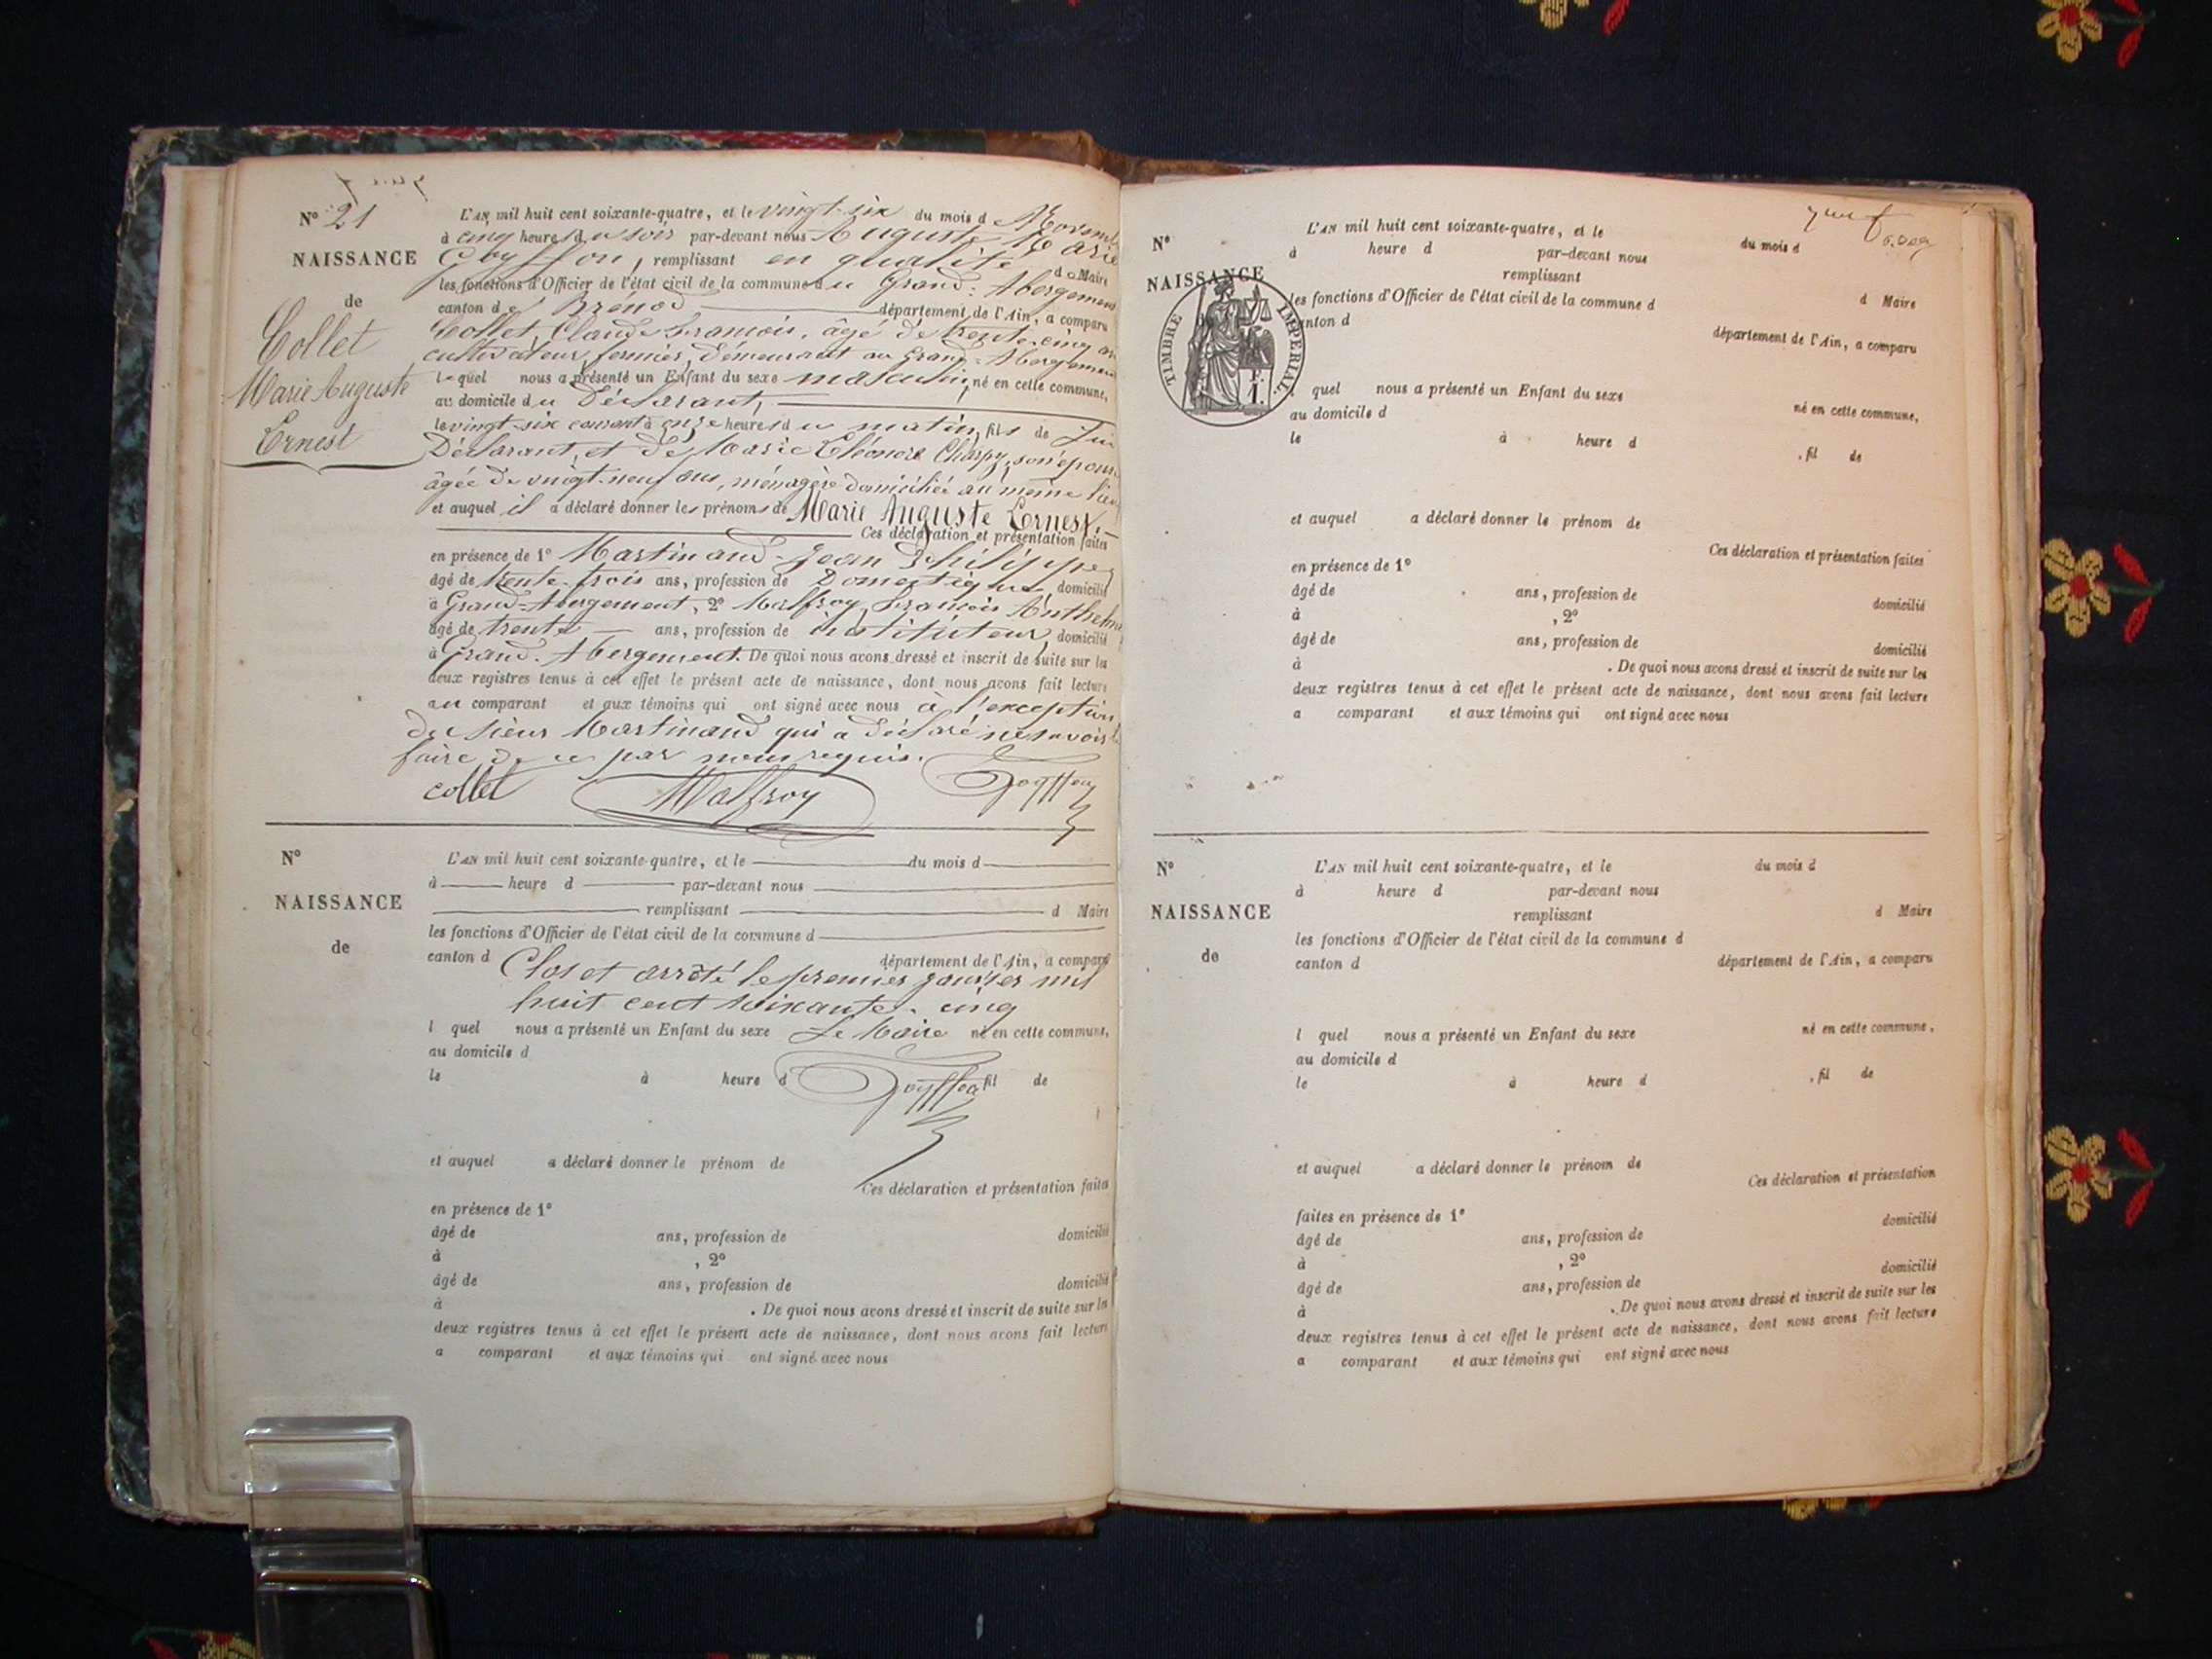 N° 21
NAISSANCE
de
Collet
Marie Auguste
Ernest
L'AN mil huit cent soixante-quatre, et le vingt-six du mois d Novemb
à cinq heures du soir par-devant nous Auguste Marie
remplissant en qualité d e Maire
les fonctions d'Officier de l'état civil de la commune du Grand-Abergement
canton de Brénod département de l'Ain, a comparu
Collet, Claude François, âgé de trente-cinq an
cultivateur fermier, demeurant au Grand-Abergement
lequel nous a présenté un Enfant du sexe masculin, né en cette commune,
au domicile du Déclarant,
le vingt-six courant à onze heures du matin, fils de lui
Déclarant, et de Marie Eléonore Charpy, son épouse
âgée de vingt-neuf ans, ménagère domiciliée au même lieu
et auquel il a déclaré donner les prénoms de Marie Auguste Ernest.
Ces déclaration et présentation faites
en présence de 1° Martinand Jean Philippe
âgé de trente-trois ans, profession de Domestique, domicilié
à Grand-Abergement, 2° Malfroy, François Anthelme
âgé de trente ans, profession de instituteur, domicilié
à Grand-Abergement. De quoi nous avons dressé et inscrit de suite sur les
deux registres tenus à cet effet le présent acte de naissance, dont nous avons fait lecture
au comparant et aux témoins qui ont signé avec nous à l'exception
du sieur Martinand qui a déclaré ne savoir le
faire de ce par nous requis.
collet Malfroy
N°
NAISSANCE
de
L'AN mil huit cent soixante-quatre, et le du mois d
à heure d par-devant nous
remplissant d Maire
les fonctions d'Officier de l'état civil de la commune d
canton d département de l'Ain, a comparu
Clos et arrêté le premier janvier mil
huit cent soixante-cinq
l quel nous a présenté un Enfant du sexe Le Maire né en cette commune,
au domicile d
le à heure d fil de
et auquel a déclaré donner le prénom de
Ces déclaration et présentation faites
en présence de 1°
âgé de ans, profession de domicilié
à , 2°
âgé de ans, profession de domicilié
à . De quoi nous avons dressé et inscrit de suite sur les
deux registres tenus à cet effet le présent acte de naissance, dont nous avons fait lecture
a comparant et aux témoins qui ont signé avec nous
N°
NAISSANCE
TIMBRE IMPERIAL.
1.
L'AN mil huit cent soixante-quatre, et le du mois d
à heure d par-devant nous
remplissant d Maire
les fonctions d'Officier de l'état civil de la commune d
canton d département de l'Ain, a comparu
quel nous a présenté un Enfant du sexe né en cette commune,
au domicile d
le à heure d , fil de
et auquel a déclaré donner le prénom de
Ces déclaration et présentation faites
en présence de 1°
âgé de ans, profession de domicilié
à , 2°
âgé de ans, profession de domicilié
à . De quoi nous avons dressé et inscrit de suite sur les
deux registres tenus à cet effet le présent acte de naissance, dont nous avons fait lecture
a comparant et aux témoins qui ont signé avec nous
N°
NAISSANCE
de
L'AN mil huit cent soixante-quatre, et le du mois d
à heure d par-devant nous
remplissant d Maire
les fonctions d'Officier de l'état civil de la commune d
canton d département de l'Ain, a comparu
l quel nous a présenté un Enfant du sexe né en cette commune,
au domicile d
le à heure d , fil de
et auquel a déclaré donner le prénom de
Ces déclaration et présentation
faites en présence de 1°
âgé de ans, profession de domicilié
à , 2°
âgé de ans, profession de domicilié
à . De quoi nous avons dressé et inscrit de suite sur les
deux registres tenus à cet effet le présent acte de naissance, dont nous avons fait lecture
a comparant et aux témoins qui ont signé avec nous